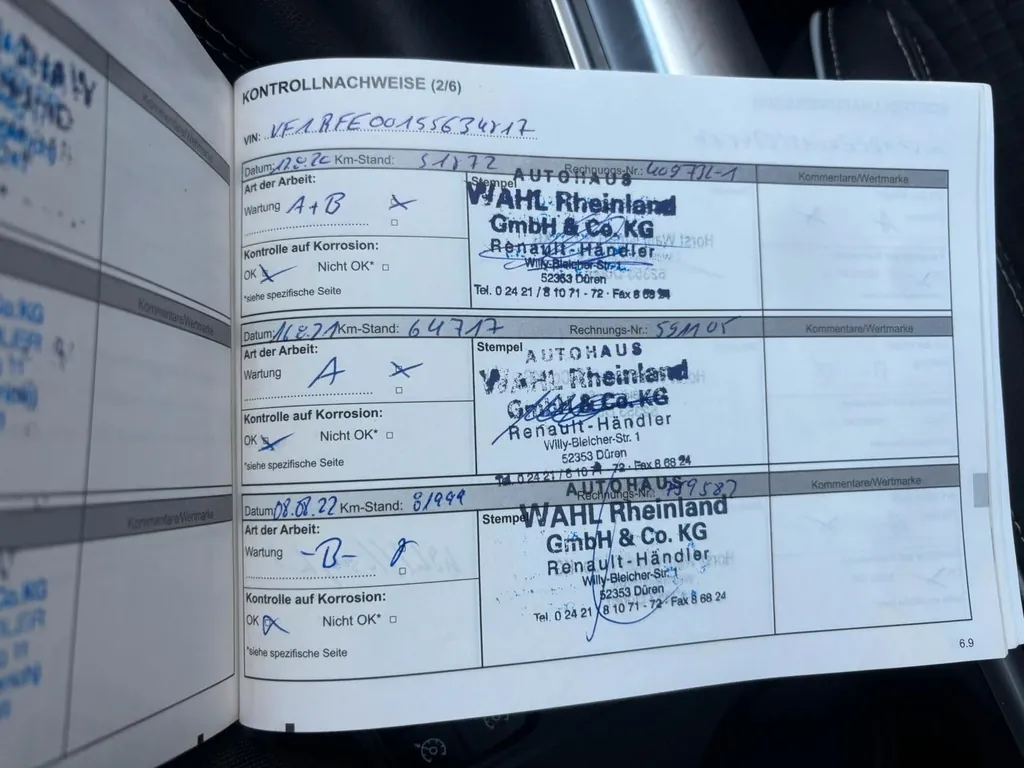 KONTROLLNACHWEISE (2/6)
VIN: VF1RFE00155634817
Datum: Km-Stand: 51872 Rechnungs-Nr.: Kommentare/Wertmarke
Art der Arbeit:
Wartung A+B
Kontrolle auf Korrosion:
OK Nicht OK*
*siehe spezifische Seite
Stempel
AUTOHAUS
WAHL Rheinland
GmbH & Co. KG
Renault-Händler
Willy-Bleicher-Str. 1
52353 Düren
Tel. 0 24 21 / 8 10 71 - 72 · Fax 8 68 24
Datum: 16.8.21 Km-Stand: 64717 Rechnungs-Nr.: 591105 Kommentare/Wertmarke
Art der Arbeit:
Wartung A
Kontrolle auf Korrosion:
OK Nicht OK*
*siehe spezifische Seite
Stempel
AUTOHAUS
WAHL Rheinland
GmbH & Co. KG
Renault-Händler
Willy-Bleicher-Str. 1
52353 Düren
Tel. 0 24 21 / 8 10 71 - 72 · Fax 8 68 24
Datum: 08.08.22 Km-Stand: 81999 Rechnungs-Nr.: 759587 Kommentare/Wertmarke
Art der Arbeit:
Wartung -B-
Kontrolle auf Korrosion:
OK Nicht OK*
*siehe spezifische Seite
Stempel
AUTOHAUS
WAHL Rheinland
GmbH & Co. KG
Renault-Händler
Willy-Bleicher-Str. 1
52353 Düren
Tel. 0 24 21 / 8 10 71 - 72 · Fax 8 68 24
6.9
Kommentare/Wertmarke
Kommentare/Wertmarke
Kommentare/Wertmarke
Co.KG
Co.KG